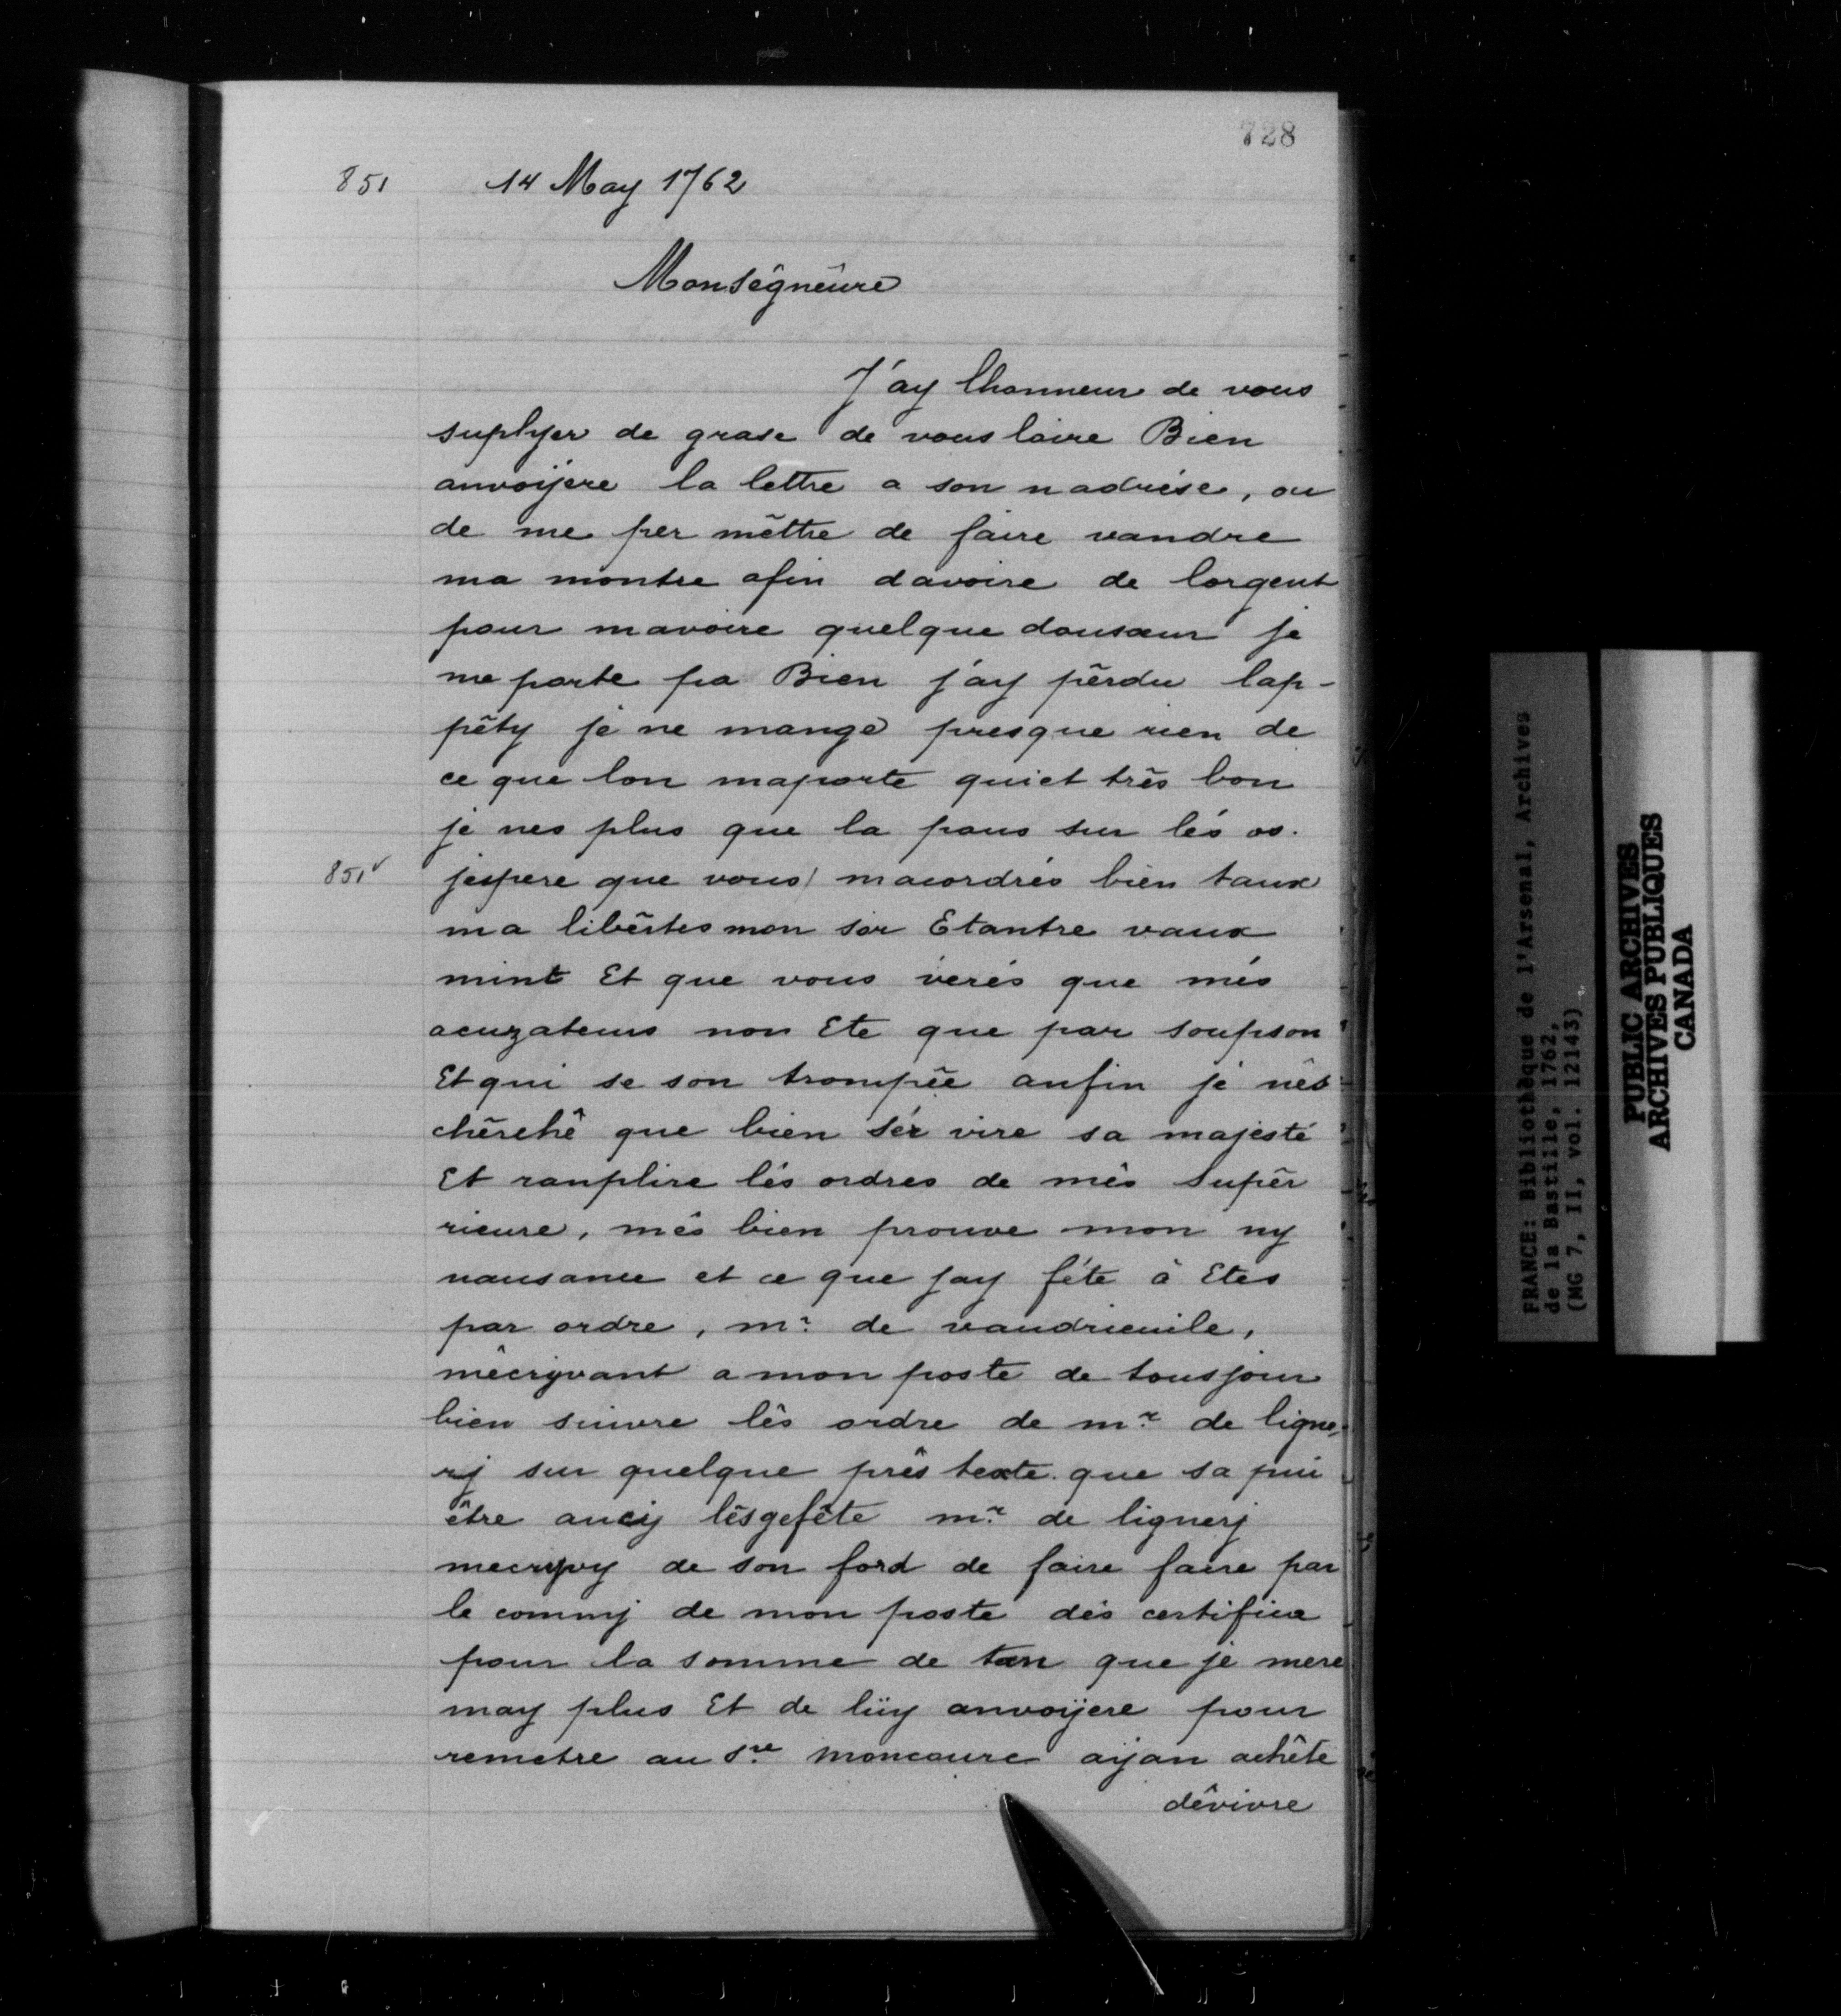 728
851 14 May 1762
Monsêgnêure
J'ay lhonneur de vous
suplyer de grase de vous loire Bien
anvoyere la lettre a son nadrése, ou
de me per mêttre de faire vandre
ma montre afin davoire de largent
pour mavoire quelque dousœur je
me porte pa Bien j'ay pêrdu lap-
pêty jé ne mange presque rien de
ce que lon maporte quiet três bon
jé nes plus que la paus sur lés os.
851v jespere que vous/ macordrés bien taux
ma libêrtes mon sor Etantre vaux
mint Et que vous verés que més
acuzateurs non Ete que par soupson
Et qui se son trompêe anfin jé nês
chêrchê que bien sér vire sa majesté
Et ranplire lés ordres de mês Supêr
rieure, mês bien prouve mon ny
nausance et ce que jay féte à Etes
par ordre, mr. de vaudrieuile,
mêcryvant a mon poste de tousjour
bien suivre lês ordre de mr. de ligne,
ry sur quelque prês texte que sa pui
être aucy lêsgefête mr. de lignery
mecryvy de son ford de faire faire par
le commy de mon poste dés certifica
pour la somme de tan que jé mere
may plus Et de lüy anvoyere pour
remetre au Sre. moncoure ayan achête
dêvivre
FRANCE: Bibliothèque de l'Arsenal, Archives
de la Bastille, 1762,
(MG 7, II, vol. 12143)
PUBLIC ARCHIVES
ARCHIVES PUBLIQUES
CANADA